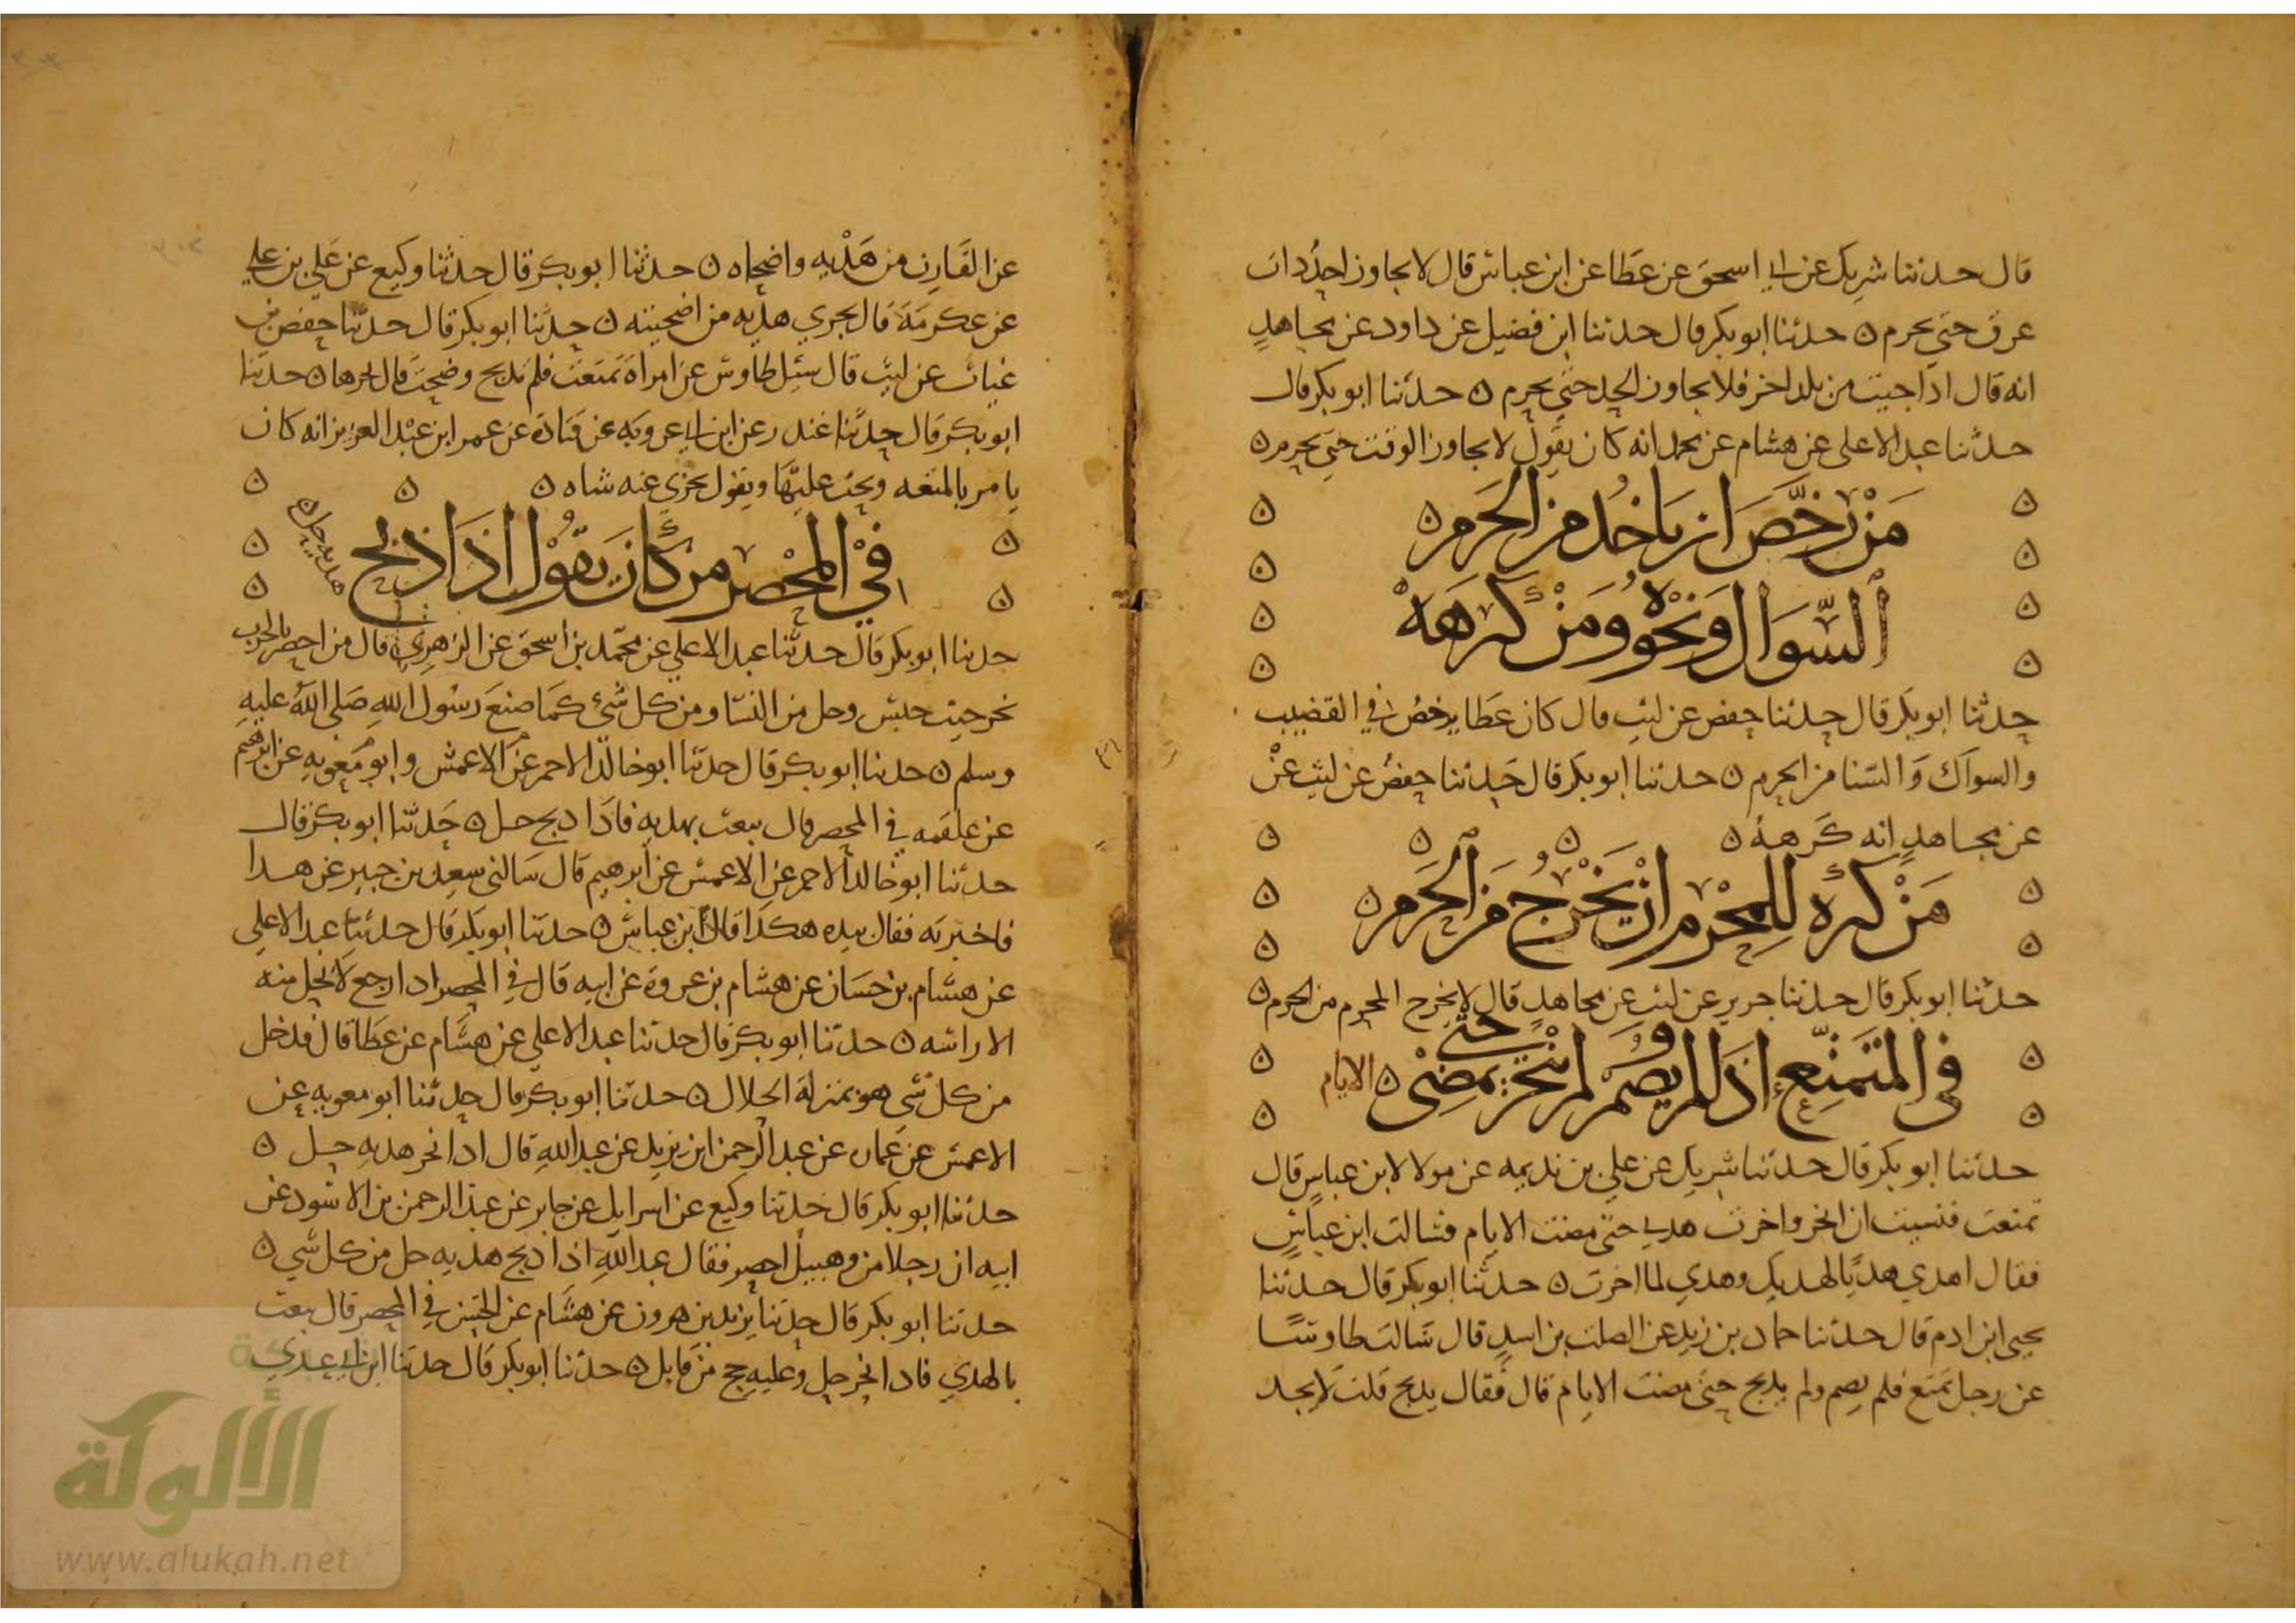 قال حدثنا شريك عن ابي اسحق عن عطا عن ابن عباس قال لا يجاوز احد ذات
عرق حتي يحرم ه حدثنا ابو بكر قال حدثنا ابن فضيل عن داود عن مجاهد
انه قال اذا جيت من بلد اخر فلا يجاوز الحد حتي يحرم ه حدثنا ابو بكر قال
حدثنا عبد الاعلى عن هشام عن محمد انه كان يقول لا يجاوز الوقت حتي يحرم ه
مَنْ رخَّصَ ان ياخُذ من الحَرَم ه
السِّوَاك وَنحْوه وَمَنْ كرهَهْ
حدثنا ابو بكر قال حدثنا حفص عن ليث قال كان عطا يرخص في القضيب
والسواك وَالسنا من الحرم ه حدثنا ابو بكر قال حدثنا حفص عن ليث عنْ
عن مجاهد انه كرهه ه
مَنْ كرهَ للمحْرم انْ يَخْرُج مَن الحَرَم ه
حدثنا ابو بكر قال حدثنا جرير عن ليث عن مجاهد قال لا يخرج المحرم من الحرم ه
في المتمتِّع اذا لم يصمْ و لم ينْحر حتى يمضىْ ه الايام
حدثنا ابو بكر قال حدثنا شريك عن علي بن بذيمه عن مولا لابن عباس قال
تمتعت فنسيت ان انحر واخرت هديي حتى مضت الايام فسالت ابن عباس
فقال اهدي هديا لهديك وهدي لما اخرت ه حدثنا ابو بكر قال حدثنا
يحيى ابن ادم قال حدثنا حماد بن زيد عن الصلت بن اسد قال سَالت طاوسًا
عن رجل تمتع فلم يصم ولم يذبح حتى مضت الايام قال فقال يذبح قلت لا يجد
عن القَارن من هَدْيه واضحاه ه حدثنا ابو بكر قال حدثنا وكيع عن عَلي بن علي
عن عكرمَة قال يجزي هديه من اضحيته ه حدثنا ابو بكر قال حدثنا حفص بن
غياث عن ليث قال سئل طاوس عن امراة تمتعت فلم تذبح وضحت قال اجزها ه حدثنا
ابو بكر قال حدثنا غندر عن ابن ابي عروبه عن قتادة عن عمر ابن عبْد العزيز انه كان
يامر بالمتعه ويحث عليْهَا ويقول يجزي عنه شاه ه
في المحْصَر من كَانَ يقوْل اذَا ذبح هديه حل ه
حدثنا ابو بكر قال حدثنا عبد الاعلي عن محمد بن اسحق عن الزهري قال من احصر بالحرب
نحر حيث حبس وحل من النسَا ومن كل شيْ كمَا صنعَ رسول الله صَلى اللهُ عليهِ
وسلم ه حدثنا ابو بكر قال حدثنا ابو خالد الاحمر عن الاعمش وابو معوية عن ابرهيم
عن علقمه في المحصر قال يبعث بهديه فاذا ذبح حل ه حدثنا ابو بكر قال
حدثنا ابو خالد الاحمر عن الاعمش عن ابرهيم قال سَالني سعيد بن جبير عن هذا
فاخبرته فقال بيده هكذا قال ابن عباس ه حدثنا ابو بكر قال حدثنا عبد الاعلي
عن هشام بن حسَان عن هشام بن عروة عن ابيه قال في المحصر اذا رجع لا يحل منه
الا راسه ه حدثنا ابو بكر قال حدثنا عبد الاعلي عن هشام عن عطا قال قد حل
من كل شي هو بمنزلة الحلال ه حدثنا ابو بكر قال حدثنا ابو معويه عن
الاعمش عن عمار عن عبد الرحمن ابن يزيد عن عبد الله قال اذا نحر هديه حل ه
حدثنا ابو بكر قال حدثنا وكيع عن اسرايل عن جابر عن عبد الرحمن بن الاسود عن
ابيه ان رجلا من وهبيل احصر فقال عبد الله اذا ذبح هديه حل من كل شي ه
حدثنا ابو بكر قال حدثنا يزيد بن هرون عن هشام عن الحسن في المحصر قال يبعث
بالهدي فاذا نحر حل وعليه حج من قابل ه حدثنا ابو بكر قال حدثنا ابن ابي عدي
الألوكة
www.alukah.net